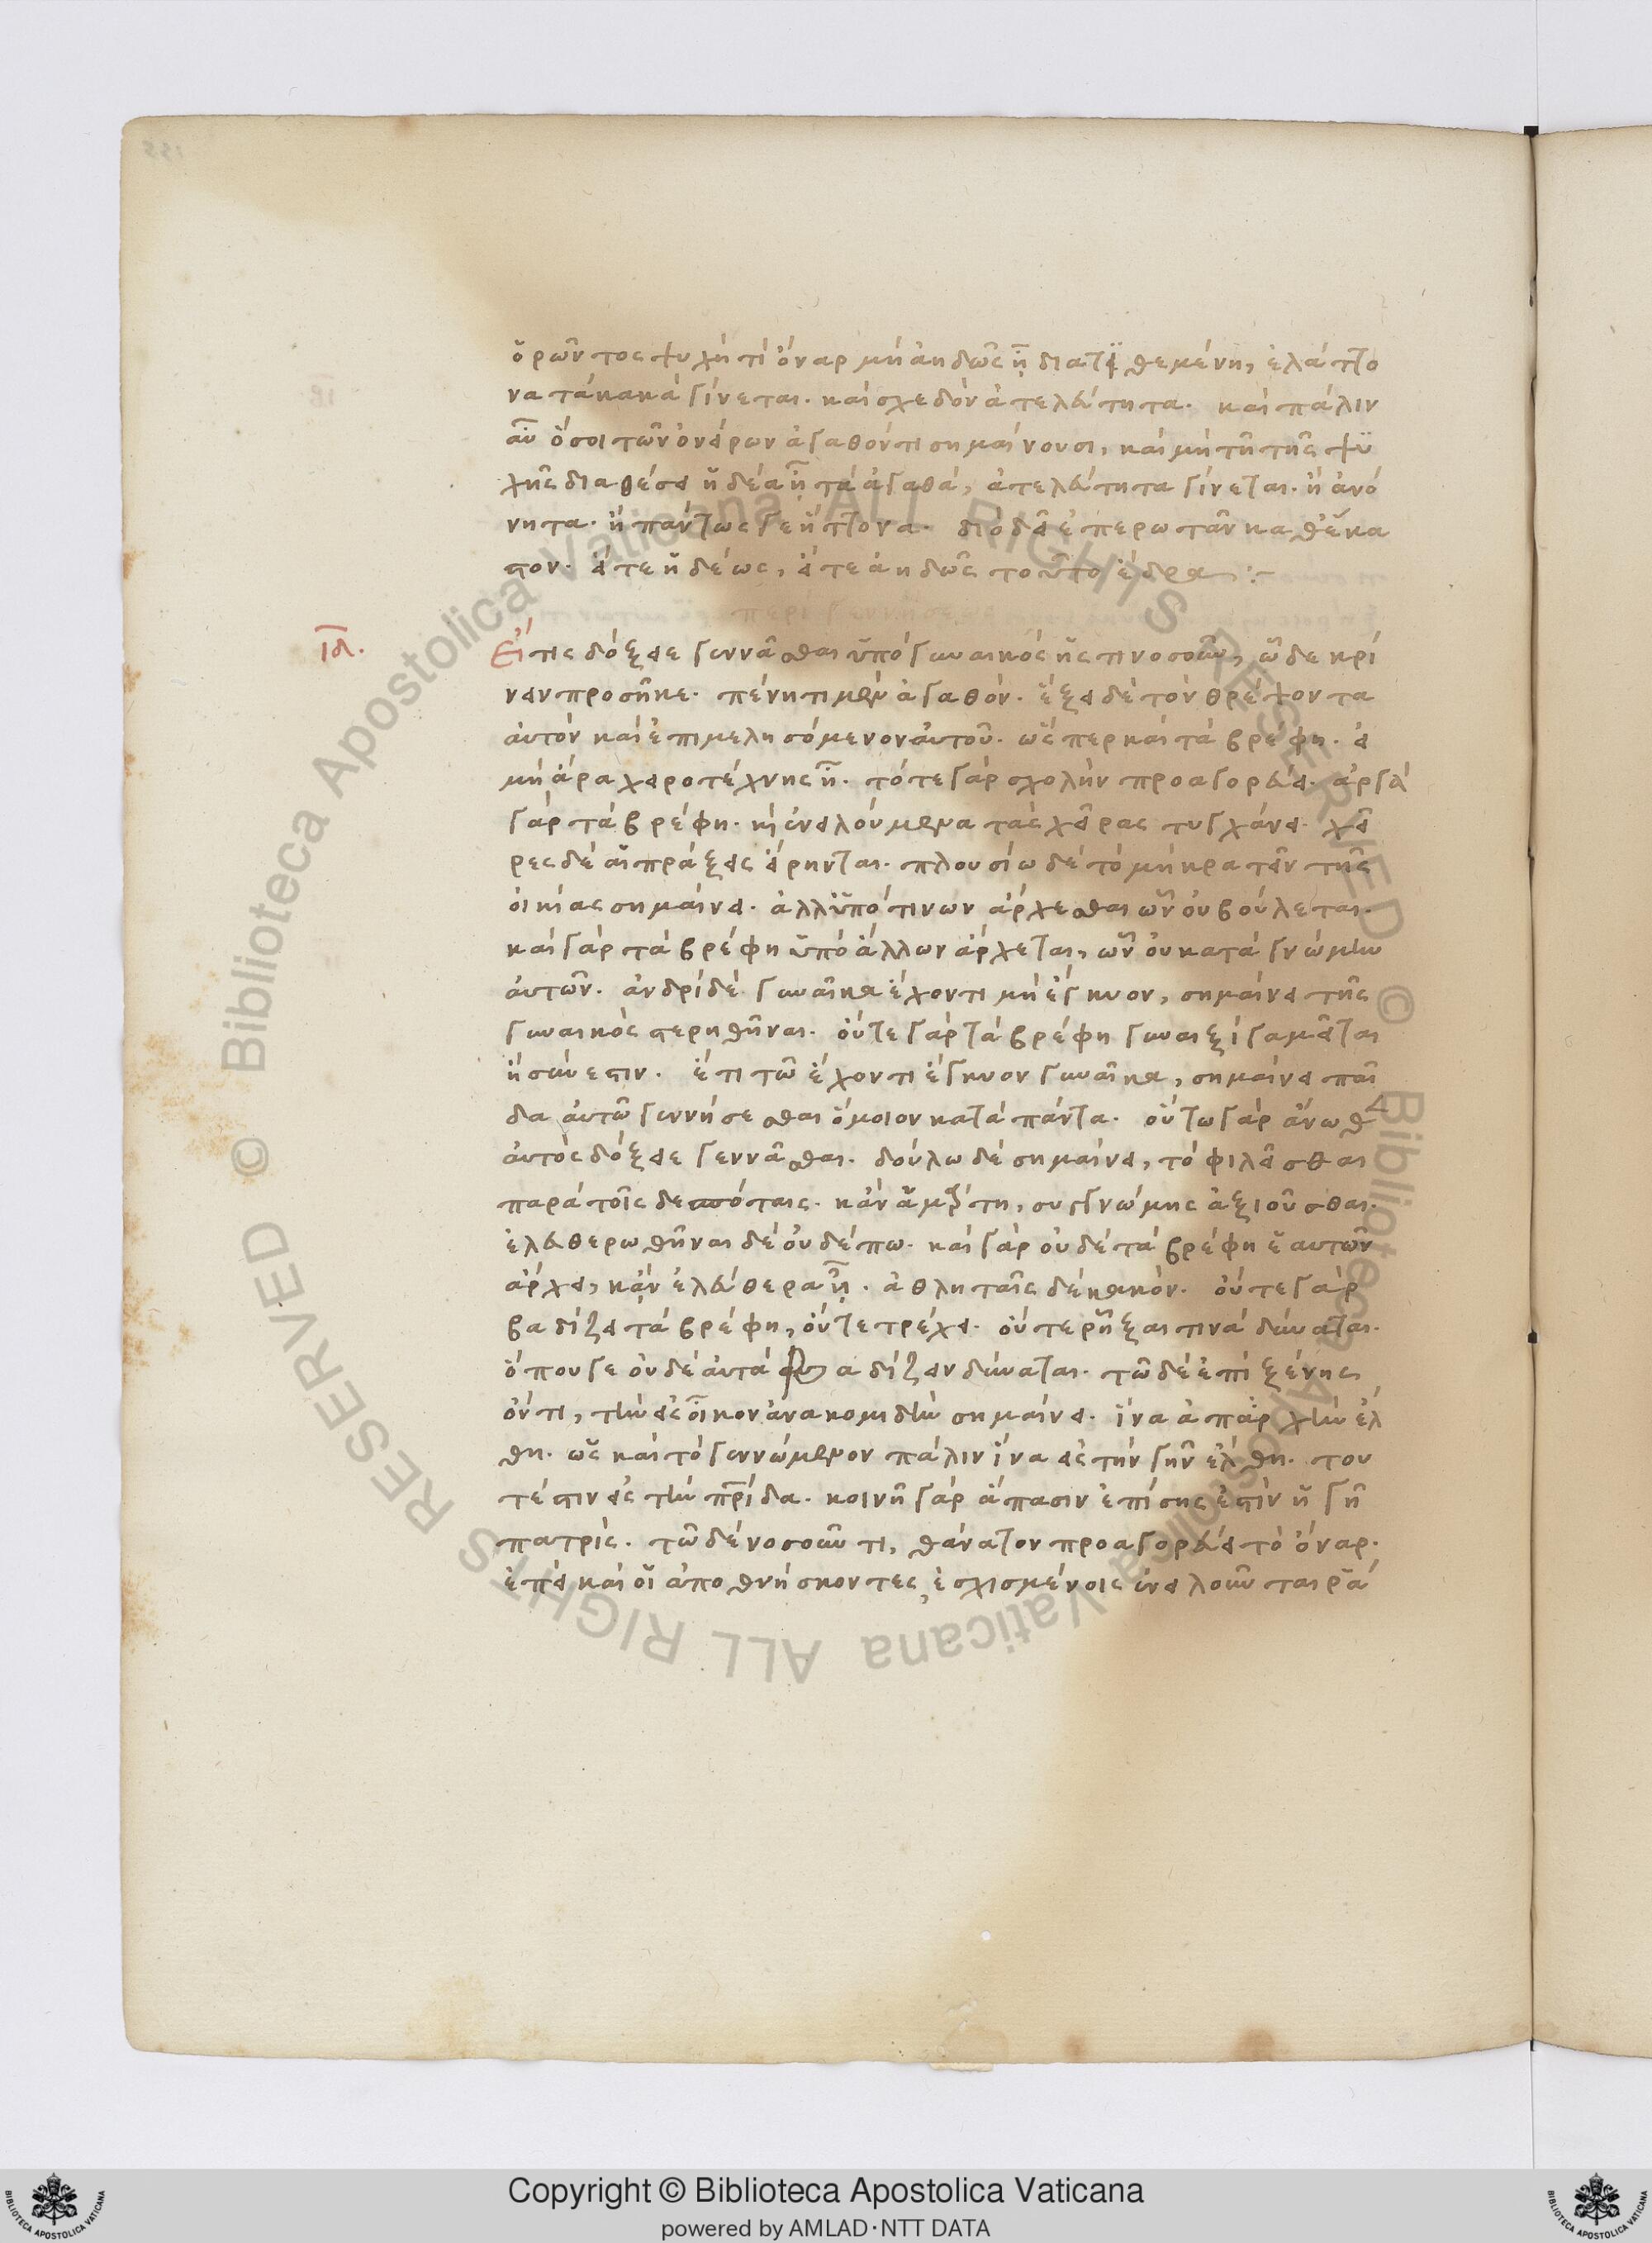 ὁρῶντος ψυχή τι ὄναρ μὴ ἀηδῶς ᾖ διατιθεμένη, ἐλάττο
να τὰ κακὰ γίνεται. καὶ σχεδὸν ἀτελεύτητα. καὶ πάλιν
αὖ ὅσοι τῶν ὀνείρων ἀγαθόν τι σημαίνουσι, καὶ μὴ τῇ τῆς ψυ
χῆς διαθέσει ἡδέα ᾖ τὰ ἀγαθὰ, ἀτελεύτητα γίνεται. ἢ ἀνό
νητα. ἢ πάντως γε ἥττονα. διὸ δεῖ ἐπερωτᾶν καθ' ἕκα
στον. εἴτε ἡδέως, εἴτε ἀηδῶς τοῦτο ἔδρα :-
ιδ.
Εἴ τις δόξειε γεννᾶσθαι ὑπὸ γυναικὸς ἧς τινοσοῦν, ὧδε κρί
νειν προσῆκε. πένητι μὲν ἀγαθόν. ἕξει δὲ τὸν θρέψοντα
αὐτὸν καὶ ἐπιμελησόμενον αὐτοῦ. ὥσπερ καὶ τὰ βρέφη. εἰ
μὴ ἄρα χειροτέχνης ᾖ. τότε γὰρ σχολὴν προαγορεύει. ἀργεῖ
γὰρ τὰ βρέφη. κἠ ἐνειλούμενα τὰς χεῖρας τυγχάνει. χεῖ
ρες δὲ αἱ πράξεις εἴρηνται. πλουσίω δὲ τὸ μὴ κρατεῖν τῆς
οἰκίας σημαίνει. ἀλλ' ὑπό τινων ἄρχεσθαι ὧν οὐ βούλεται.
καὶ γὰρ τὰ βρέφη ὑπὸ ἄλλων ἄρχεται, ὧν οὐ κατὰ γνώμην
αὐτῶν. ἀνδρὶ δὲ γυναῖκα ἔχοντι μὴ ἔγκυον, σημαίνει τῆς
γυναικὸς στερηθῆναι. οὔτε γὰρ τὰ βρέφη γυναιξὶ γαμεῖται
ἢ σύνεστιν. ἔτι τῶ ἔχοντι ἔγκυον γυναῖκα, σημαίνει παῖ
δα αὐτῶ γεννήσεσθαι ὅμοιον κατὰ πάντα. οὕτω γὰρ ἄνωθεν
αὐτὸς δόξειε γεννᾶσθαι. δούλω δὲ σημαίνει, τὸ φιλεῖσθαι
παρὰ τοῖς δεσπόταις. κἂν ἁμάρτη, συγγνώμης ἀξιοῦσθαι.
ἐλευθερωθῆναι δὲ οὐδέπω. καὶ γὰρ οὐδὲ τὰ βρέφη ἑαυτῶν
ἄρχει, κἂν ἐλεύθερα ᾖ. ἀθληταῖς δὲ κακόν. οὔτε γὰρ
βαδίζει τὰ βρέφη, οὔτε τρέχει. οὔτε ῥῆξαι τινὰ δύναται.
ὅπου γε οὐδὲ αὐτὰ βαδίζειν δύναται. τῶ δὲ ἐπὶ ξένης
ὄντι, τὴν εἰς οἶκον ἀνακομιδὴν σημαίνει. ἵνα ἐπ' ἀρχὴν ἔλ
θη. ὡς καὶ τὸ γεννώμενον πάλιν ἵνα εἰς τὴν γῆν ἔλθη. του
τέστιν εἰς τὴν πρίδα. κοινὴ γὰρ ἅπασιν ἐπίσης ἐστὶν ἡ γῆ
πατρίς. τῶ δὲ νοσοῦντι, θάνατον προαγορεύει τὸ ὄναρ.
ἐπεὶ καὶ οἱ ἀποθνήσκοντες, ἐσχισμένοις ἐνειλοῦνται ῥά